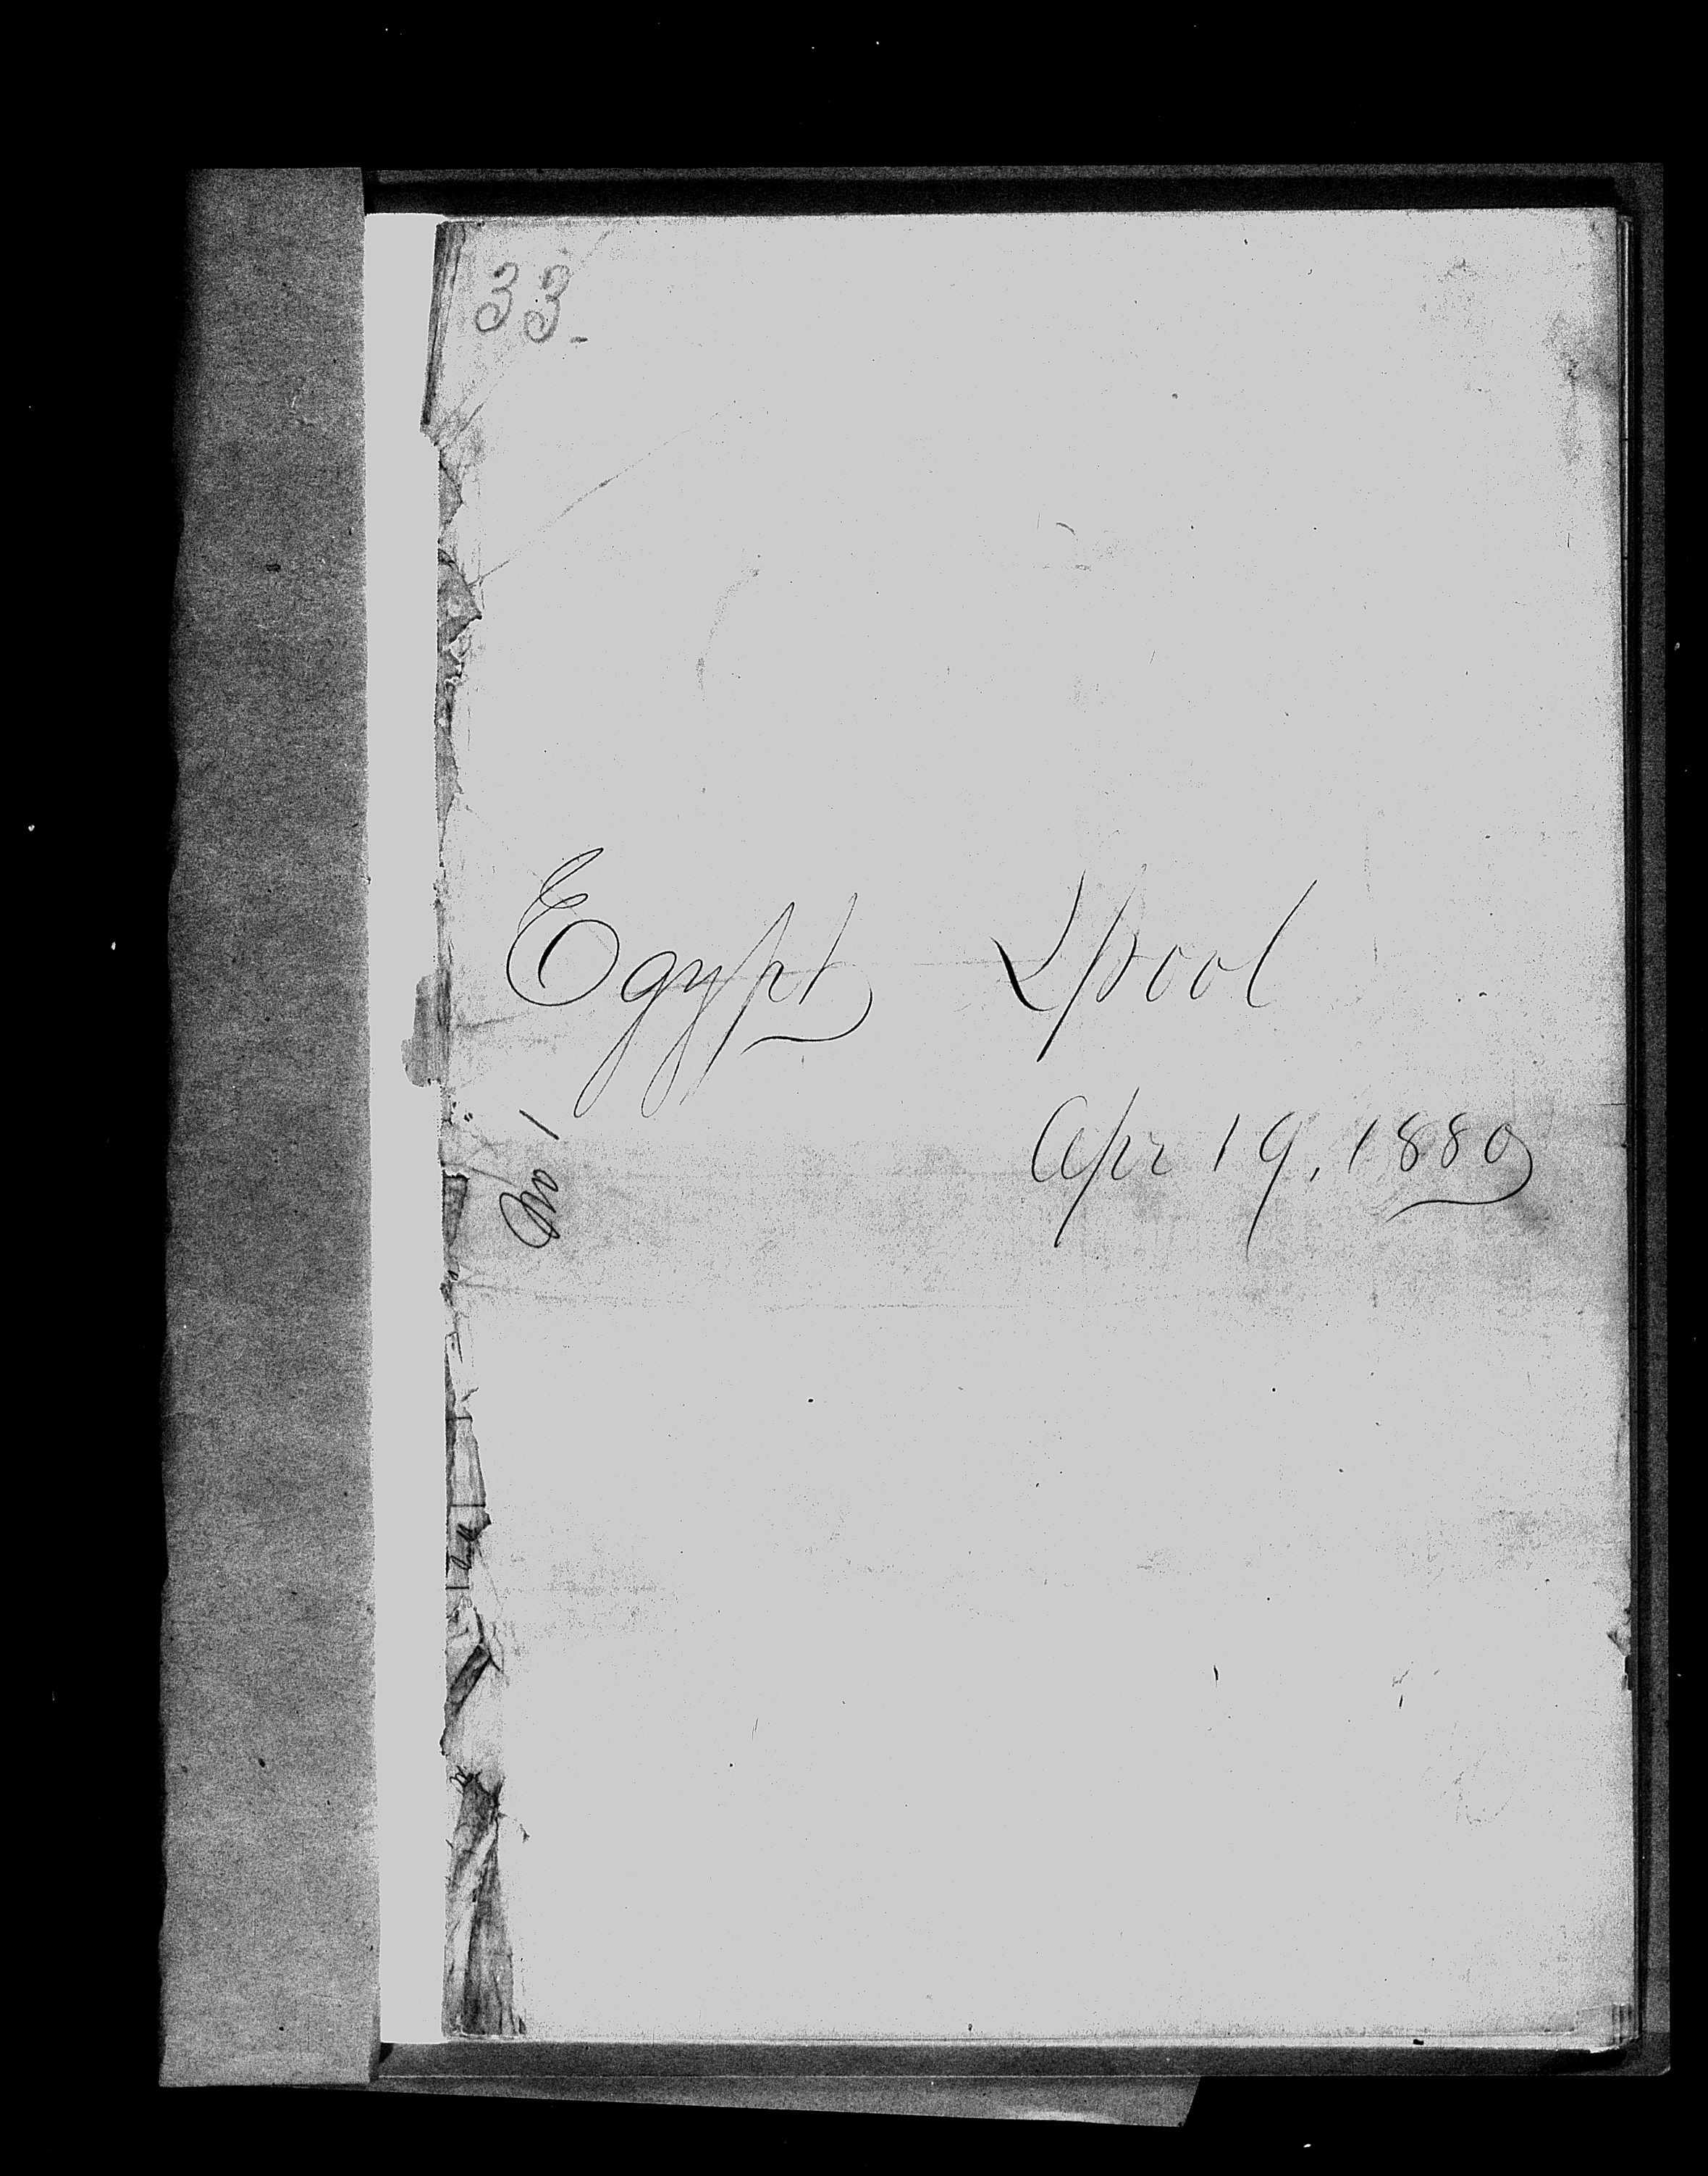 33.
Egypt Lpool
Apr 19, 1880
No 1